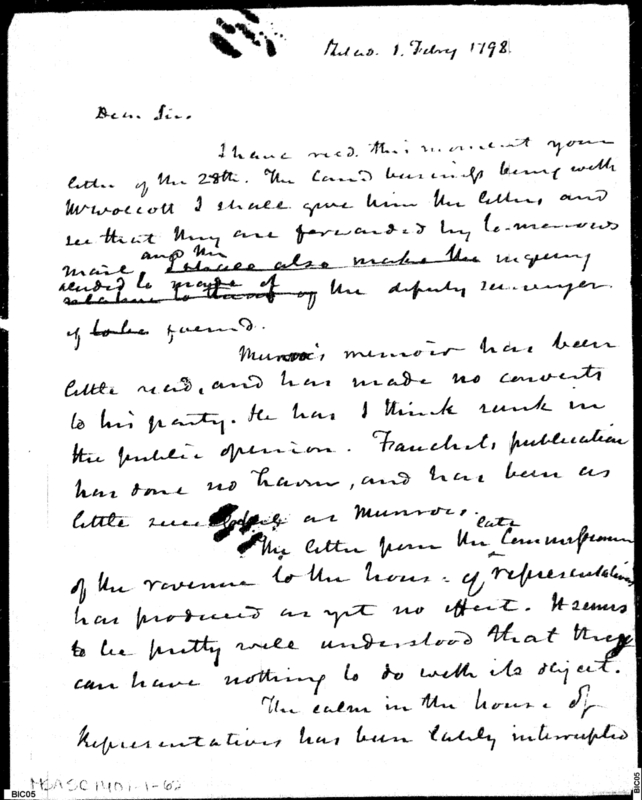 Philad. 1. Febry 1798.
Dear Sir.
I have recd. this moment your
letter of the 28th. The Land business being with
Mr Wolcott I shall give him the letters and
see that they are forwarded by to-morrows
mail and the I shall also make the inquiry
made of the deputy surveyor.
if to be found.
Munro's memoir has been
little read, and has made no converts
to his party. He has I think sunk in
the public opinion. Fauchets publication
has done no harm, and has been as
little as Munroes.
The letter from the late Commissioner
of the revenue to the house of representatives
has produced as yet no effect. It seems
to be pretty well understood that they
can have nothing to do with its object.
The calm in the house of
Representatives has been lately interrupted
BIC05
BIC05